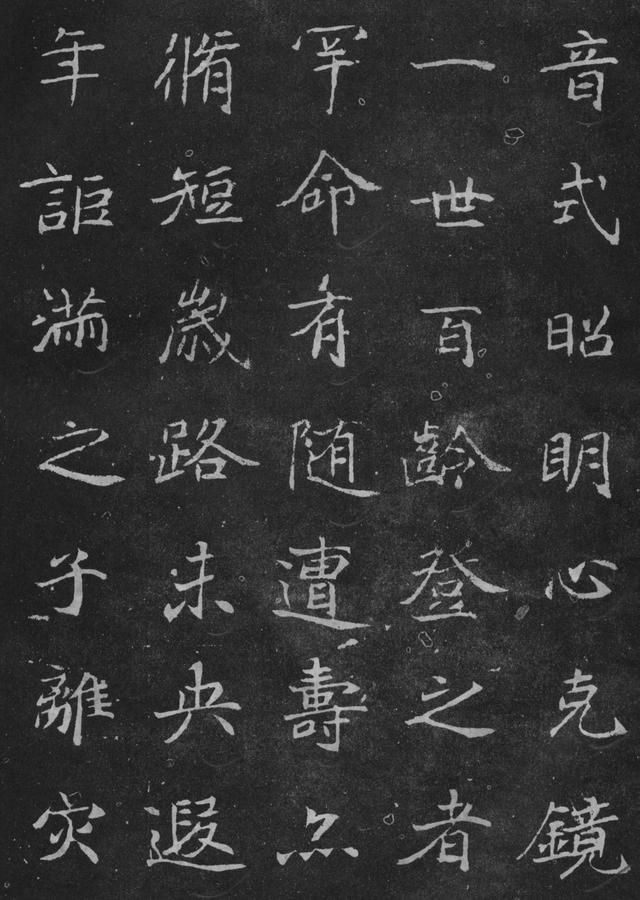 音式昭明心克鏡
一世百齡登之者
罕命有随遭壽
脩短歲路未央遐
年詎滿之子離灾